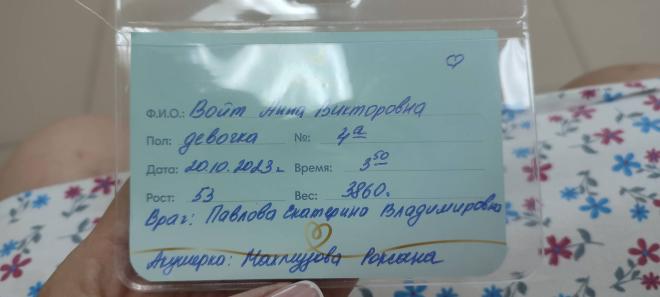 Ф.И.О.: Войт Анна Викторовна
Пол: девочка №: 4а
Дата: 20.10.2023г. Время: 3 50
Рост: 53 Вес: 3860г.
Врач: Павлова Екатерина Владимировна
Акушерка: Махмудова Роксана